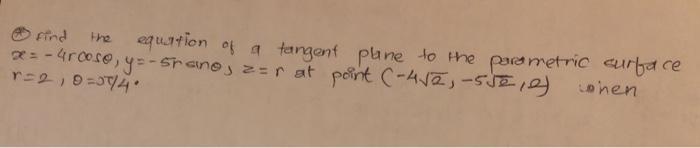 ⊛ Find the equation of a tangent plane to the parametric surface
x = -4rcosθ, y = -5rsinθ, z = r at point (-4√2, -5√2, 2) when
r=2, θ=5π/4.